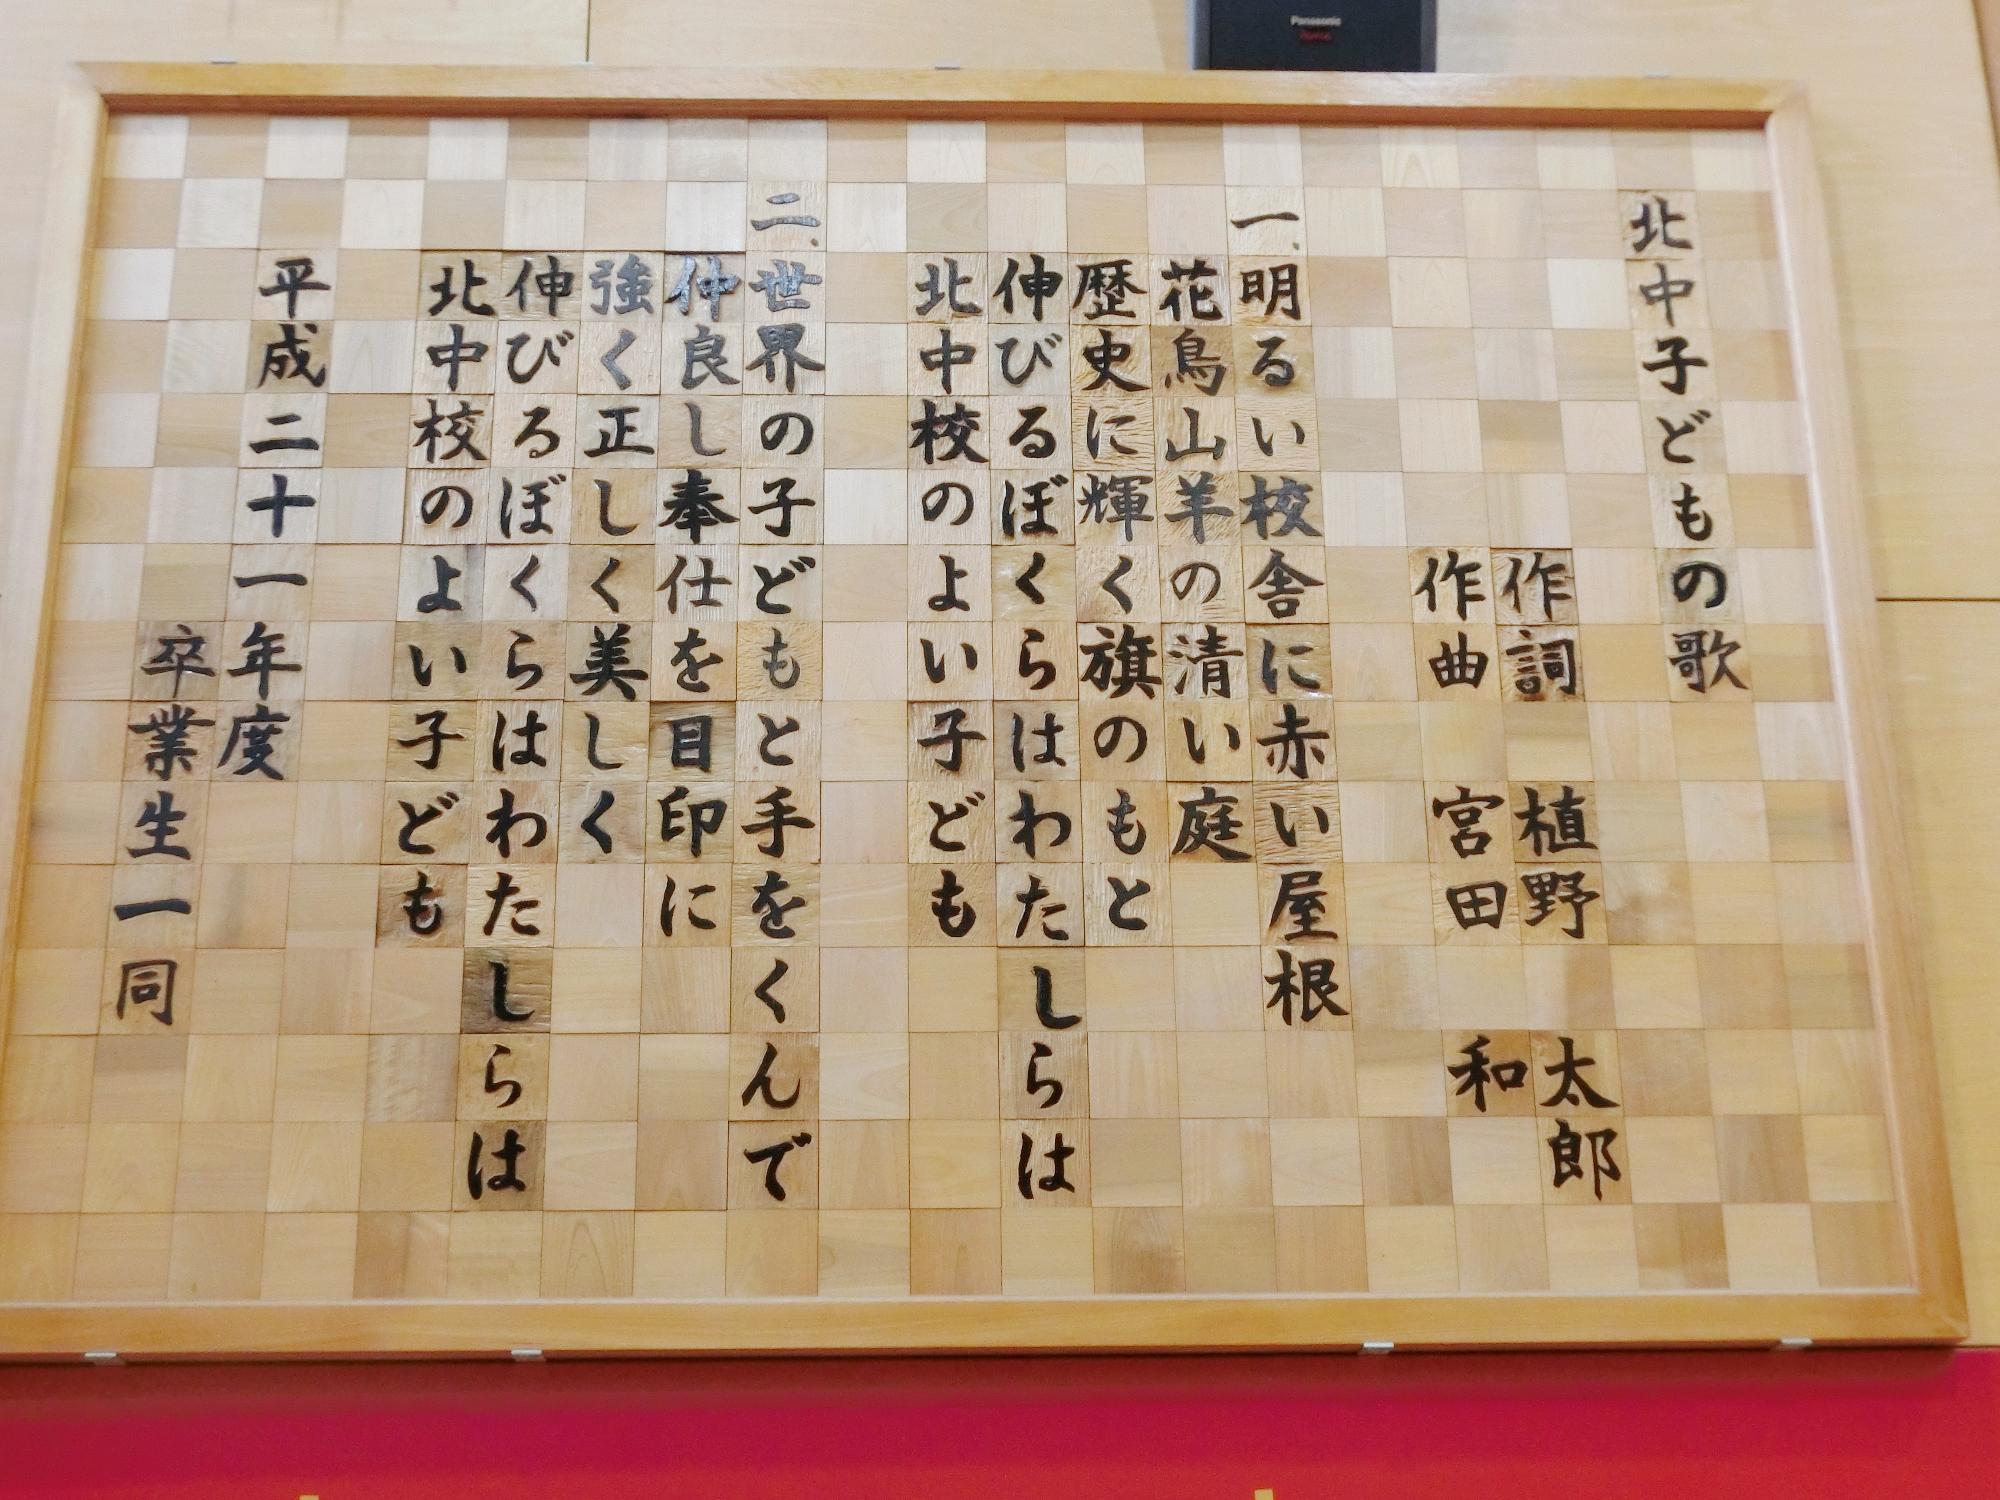 Panasonic
北中子どもの歌
作詞 植野 太郎
作曲 宮田 和
一、明るい校舎に赤い屋根
花鳥山羊の清い庭
歴史に輝く旗のもと
伸びるぼくらはわたしらは
北中校のよい子ども
二、世界の子どもと手をくんで
仲良し奉仕を目印に
強く正しく美しく
伸びるぼくらはわたしらは
北中校のよい子ども
平成二十一年度
卒業生一同